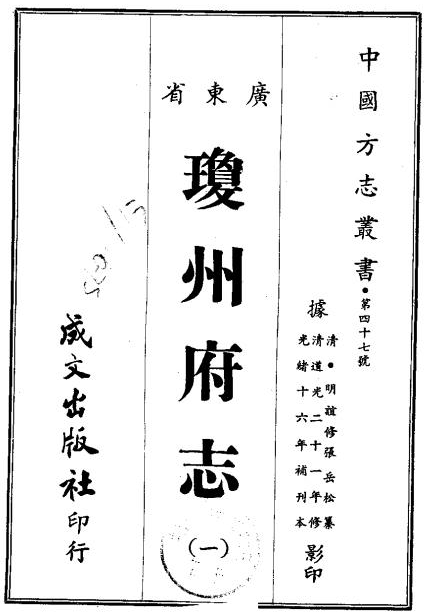 中國方志叢書•第四十七號
據
清•明誼修張岳松纂
清道光二十一年修
光緒十六年補刊本
影印
廣東省
瓊州府志
(一)
成文出版社印行